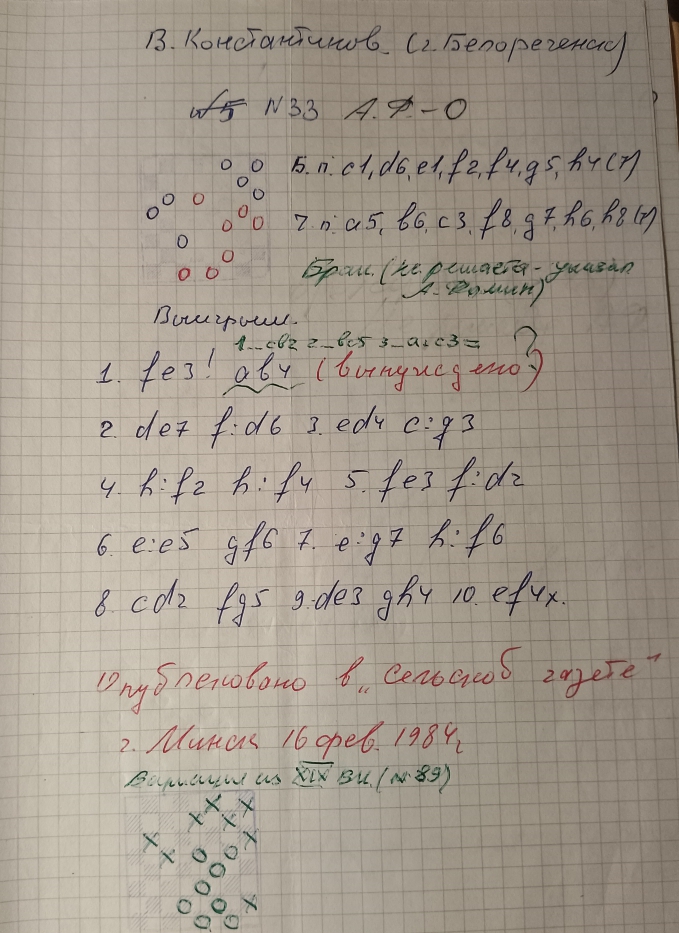 В. Константинов. (г. Белореченск)
№5 N33 А.Ф.-О
Б.п: c1, d6, e1, f2, f4, g5, h4 (7)
Ч.п: a5, b6, c3, f8, g7, h6, h8 (7)
Брак. (не решается - указал
А. Фомин)
Выигрыш.
1...cb2 2...bc5 3...a:c3= ?
1. fe3! ab4 (вынуждено)
2. de7 f:d6 3. ed4 c:g3
4. h:f2 h:f4 5. fe3 f:d2
6. e:e5 gf6 7. e:g7 h:f6
8. cd2 fg5 9. de3 gh4 10. ef4x.
Опубликовано в „Сельской газете"
г. Минск 16 фев. 1984г
Вариация из XIX ВК. (N 89)